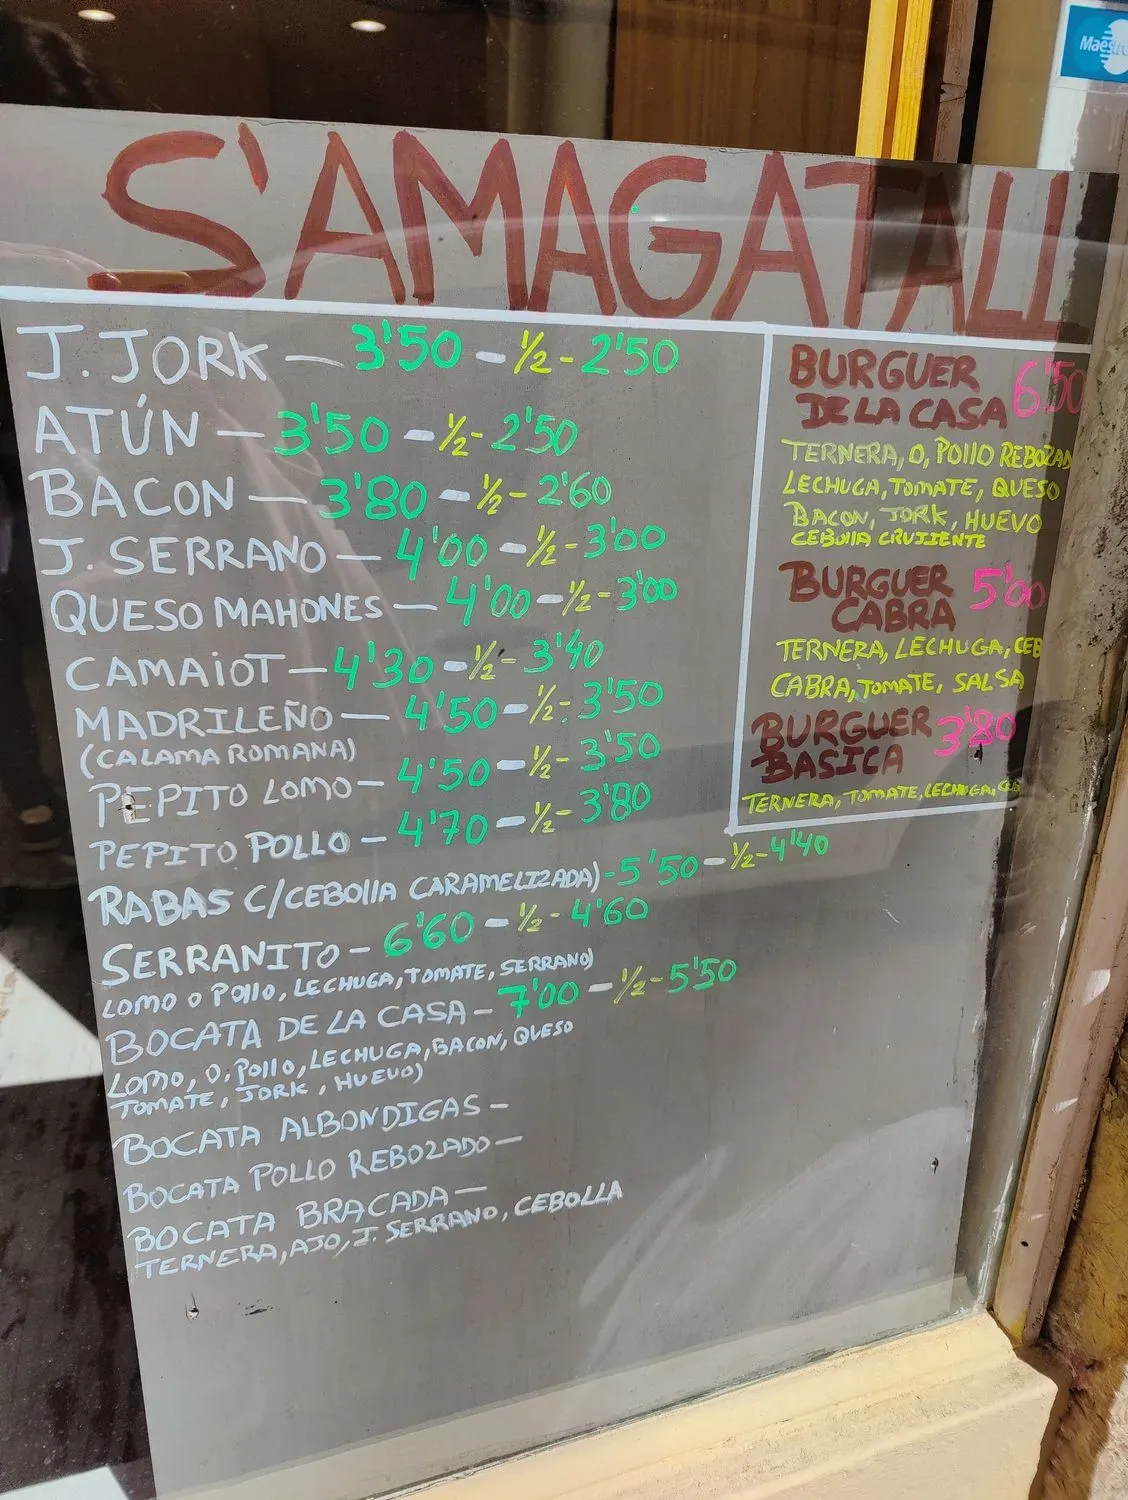 Maestro
S'AMAGATALL
J. JORK — 3'50 - ½ - 2'50
ATÚN — 3'50 - ½ - 2'50
BACON — 3'80 - ½ - 2'60
J. SERRANO — 4'00 - ½ - 3'00
QUESO MAHONES — 4'00 - ½ - 3'00
CAMAIOT — 4'30 - ½ - 3'40
MADRILEÑO — 4'50 - ½ - 3'50
(CALAMA ROMANA)
PEPITO LOMO — 4'50 - ½ - 3'50
PEPITO POLLO — 4'70 - ½ - 3'80
RABAS C/CEBOLLA CARAMELIZADA) - 5'50 - ½ - 4'40
SERRANITO — 6'60 - ½ - 4'60
LOMO O POLLO, LECHUGA, TOMATE, SERRANO)
BOCATA DE LA CASA — 7'00 - ½ - 5'50
LOMO, O, POLLO, LECHUGA, BACON, QUESO
TOMATE, JORK, HUEVO)
BOCATA ALBONDIGAS —
BOCATA POLLO REBOZADO —
BOCATA BRACADA —
TERNERA, AJO, J. SERRANO, CEBOLLA
BURGUER 6'50
DE LA CASA
TERNERA, O, POLLO REBOZAD
LECHUGA, TOMATE, QUESO
BACON, JORK, HUEVO
CEBOLLA CRUJIENTE
BURGUER 5'00
CABRA
TERNERA, LECHUGA, CEB
CABRA, TOMATE, SALSA
BURGUER 3'80
BASICA
TERNERA, TOMATE, LECHUGA, CEB